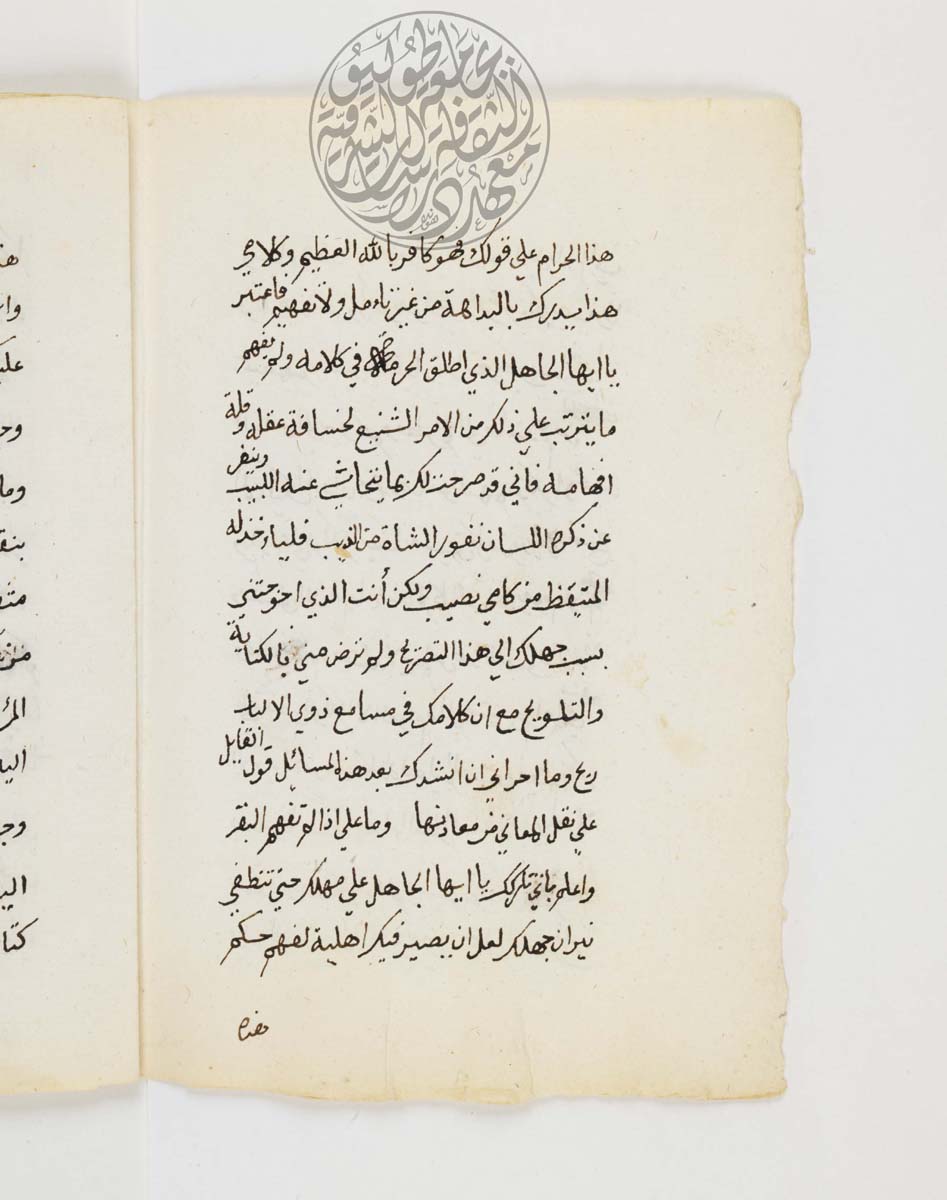 جامعة طوكيو
الثقافة الشرقية
معهد دراسات
هذا الحرام علي قولك فهو كافر بالله العظيم وكلامي
هذا يدرك بالبداهة من غير تاءمل ولا تفهيم فاعتبر
يا ايها الجاهل الذي اطلق الحرمة في كلامه ولم يفهم
ما يترتب علي ذلك من الامر الشنيع لخسافة عقله وقلة
افهامه فاني قد صرحت لك بما يتحاشي عنه اللبيب وينفر
عن ذكره اللسان نفور الشاة من الذيب فلياءخذ له
المتيقظ من كلامي نصيب ولكن أنت الذي احوجتني
بسبب جهلك الي هذا التصريح ولم ترض مني بالكناية
والتلويح مع ان كلامك في مسامع ذوي الالباب
ريح وما احراني ان انشدك بعد هذه المسائل قول القايل
علي نقل المعاني من معادنها وما علي اذا لم تفهم البقر
واعلم باني تركتك يا ايها الجاهل علي مهلك حتي تنطفي
نيران جهلك لعل ان يصير فيك اهلية لفهم حكم
هذه
هذ
علي
وما
كتا